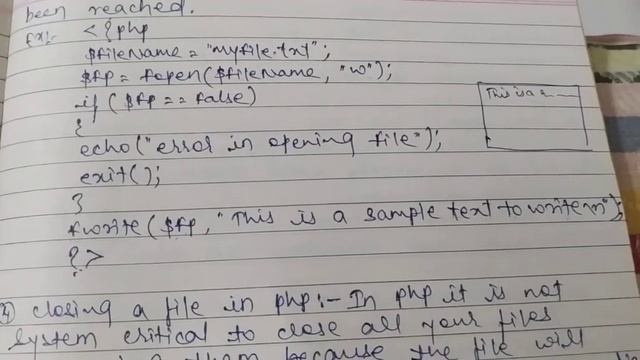 been reached.
ex:- <?php
$fileName = "myfile.txt";
$fp = fopen($fileName, "w");
if ($fp == false)
{
echo("error in opening file");
exit();
}
This is a
fwrite($fp, "This is a sample text to write\n");
?>
closing a file in php:- In php it is not
system critical to close all your files
because the file will